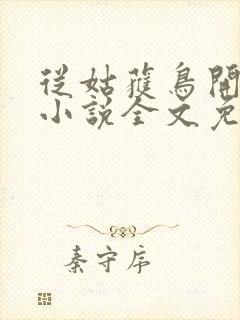 從姑獲鳥開
小說全文免
秦守序